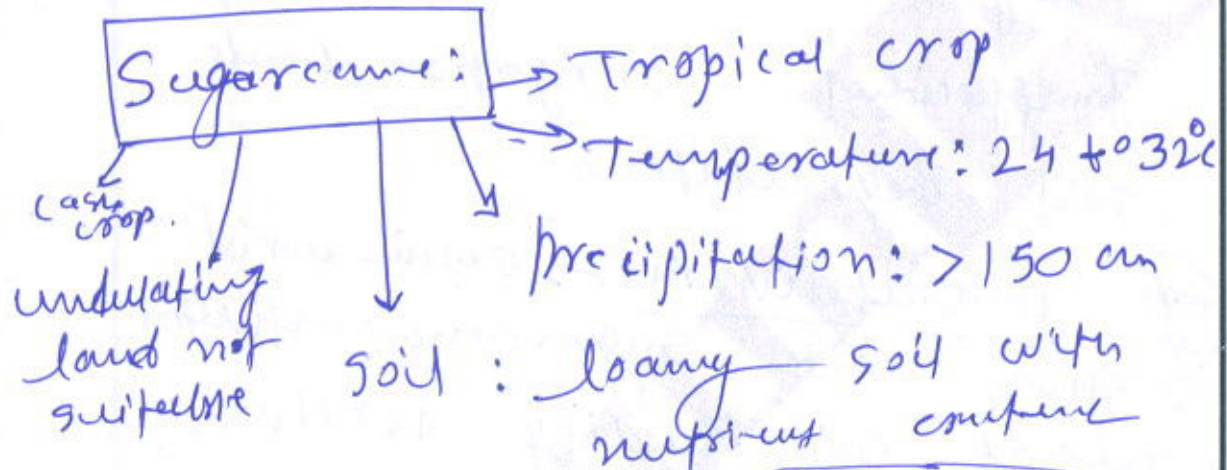 Sugarcane:
Tropical crop
Temperature: 24 to 32°C
Precipitation: >150 cm
cash crop.
undulating
land not
suitable
soil : loamy soil with
nutrient content